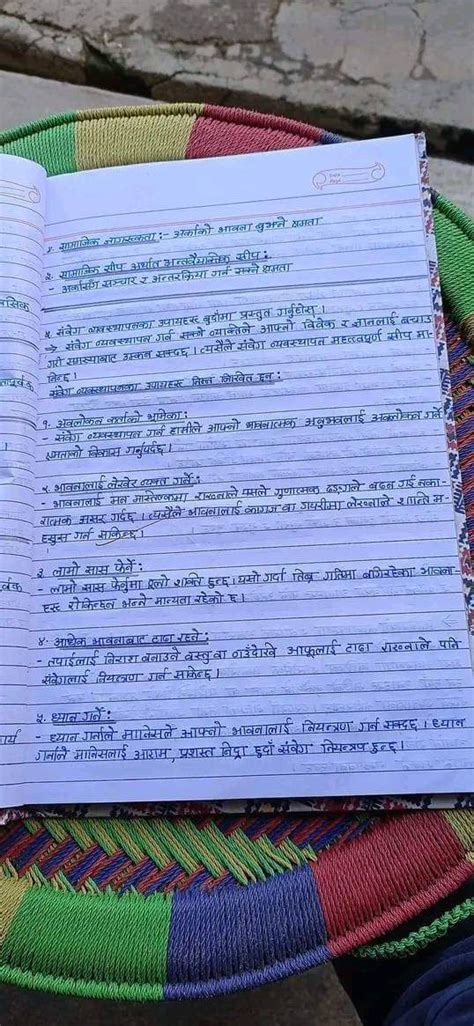 १. सामाजिक जागरुकता :- अर्काको भावना बुझ्ने क्षमता
२. सामाजिक सीप अर्थात अन्तरवैयक्तिक सीप :
- अर्कासँग सञ्चार र अन्तरक्रिया गर्न सक्ने क्षमता
५ संवेग व्यवस्थापनका उपायहरु बुदाँमा प्रस्तुत गर्नुहोस् ।
→ संवेग व्यवस्थापन गर्न सक्ने व्यक्तिले आफ्नो विवेक र ज्ञानलाई बचाउ
गरी समस्याबाट उम्कन सक्दछ । त्यसैले संवेग व्यवस्थापन महत्वपूर्ण सीप मा
निन्छ ।
संवेग व्यवस्थापनका उपायहरु निम्न लिखित छन् :
१. अवलोकन कर्ताको भूमिका :
- संवेग व्यवस्थापन गर्न हामीले आफ्नो भावनात्मक अनुभवलाई अवलोकन गर्ने
क्षमताको विकास गर्नुपर्दछ ।
२. भावनालाई लेखेर व्यक्त गर्ने :
- भावनालाई मन मस्तिष्कमा राख्नाले यसले गुणात्मक ढङ्गले बढ्न गई नका-
रात्मक असर गर्दछ । त्यसैले भावनालाई कागज वा डायरीमा लेख्नाले शान्ति म-
हसुस गर्न सकिन्छ ।
३. लामो सास फेर्ने :
- लामो सास फेर्नुमा ठूलो शक्ति हुन्छ । यसो गर्दा तिब्र गतिमा बगिरहेका भावना-
हरु रोकिन्छन भन्ने मान्यता रहेको छ ।
४. अधिक भावनाबाट टाढा रहने :
- तपाईलाई निराश बनाउने वस्तु वा ठाउँदेखि आफूलाई टाढा राख्नाले पनि
संवेगलाई नियन्त्रण गर्न सकिन्छ ।
५. ध्यान गर्ने :
- ध्यान गर्नाले मानिसले आफ्नो भावनालाई नियन्त्रण गर्न सक्दछ । ध्यान
गर्नाले मानिसलाई आराम, प्रशस्त निद्रा हुदाँ संवेग नियन्त्रण हुन्छ ।